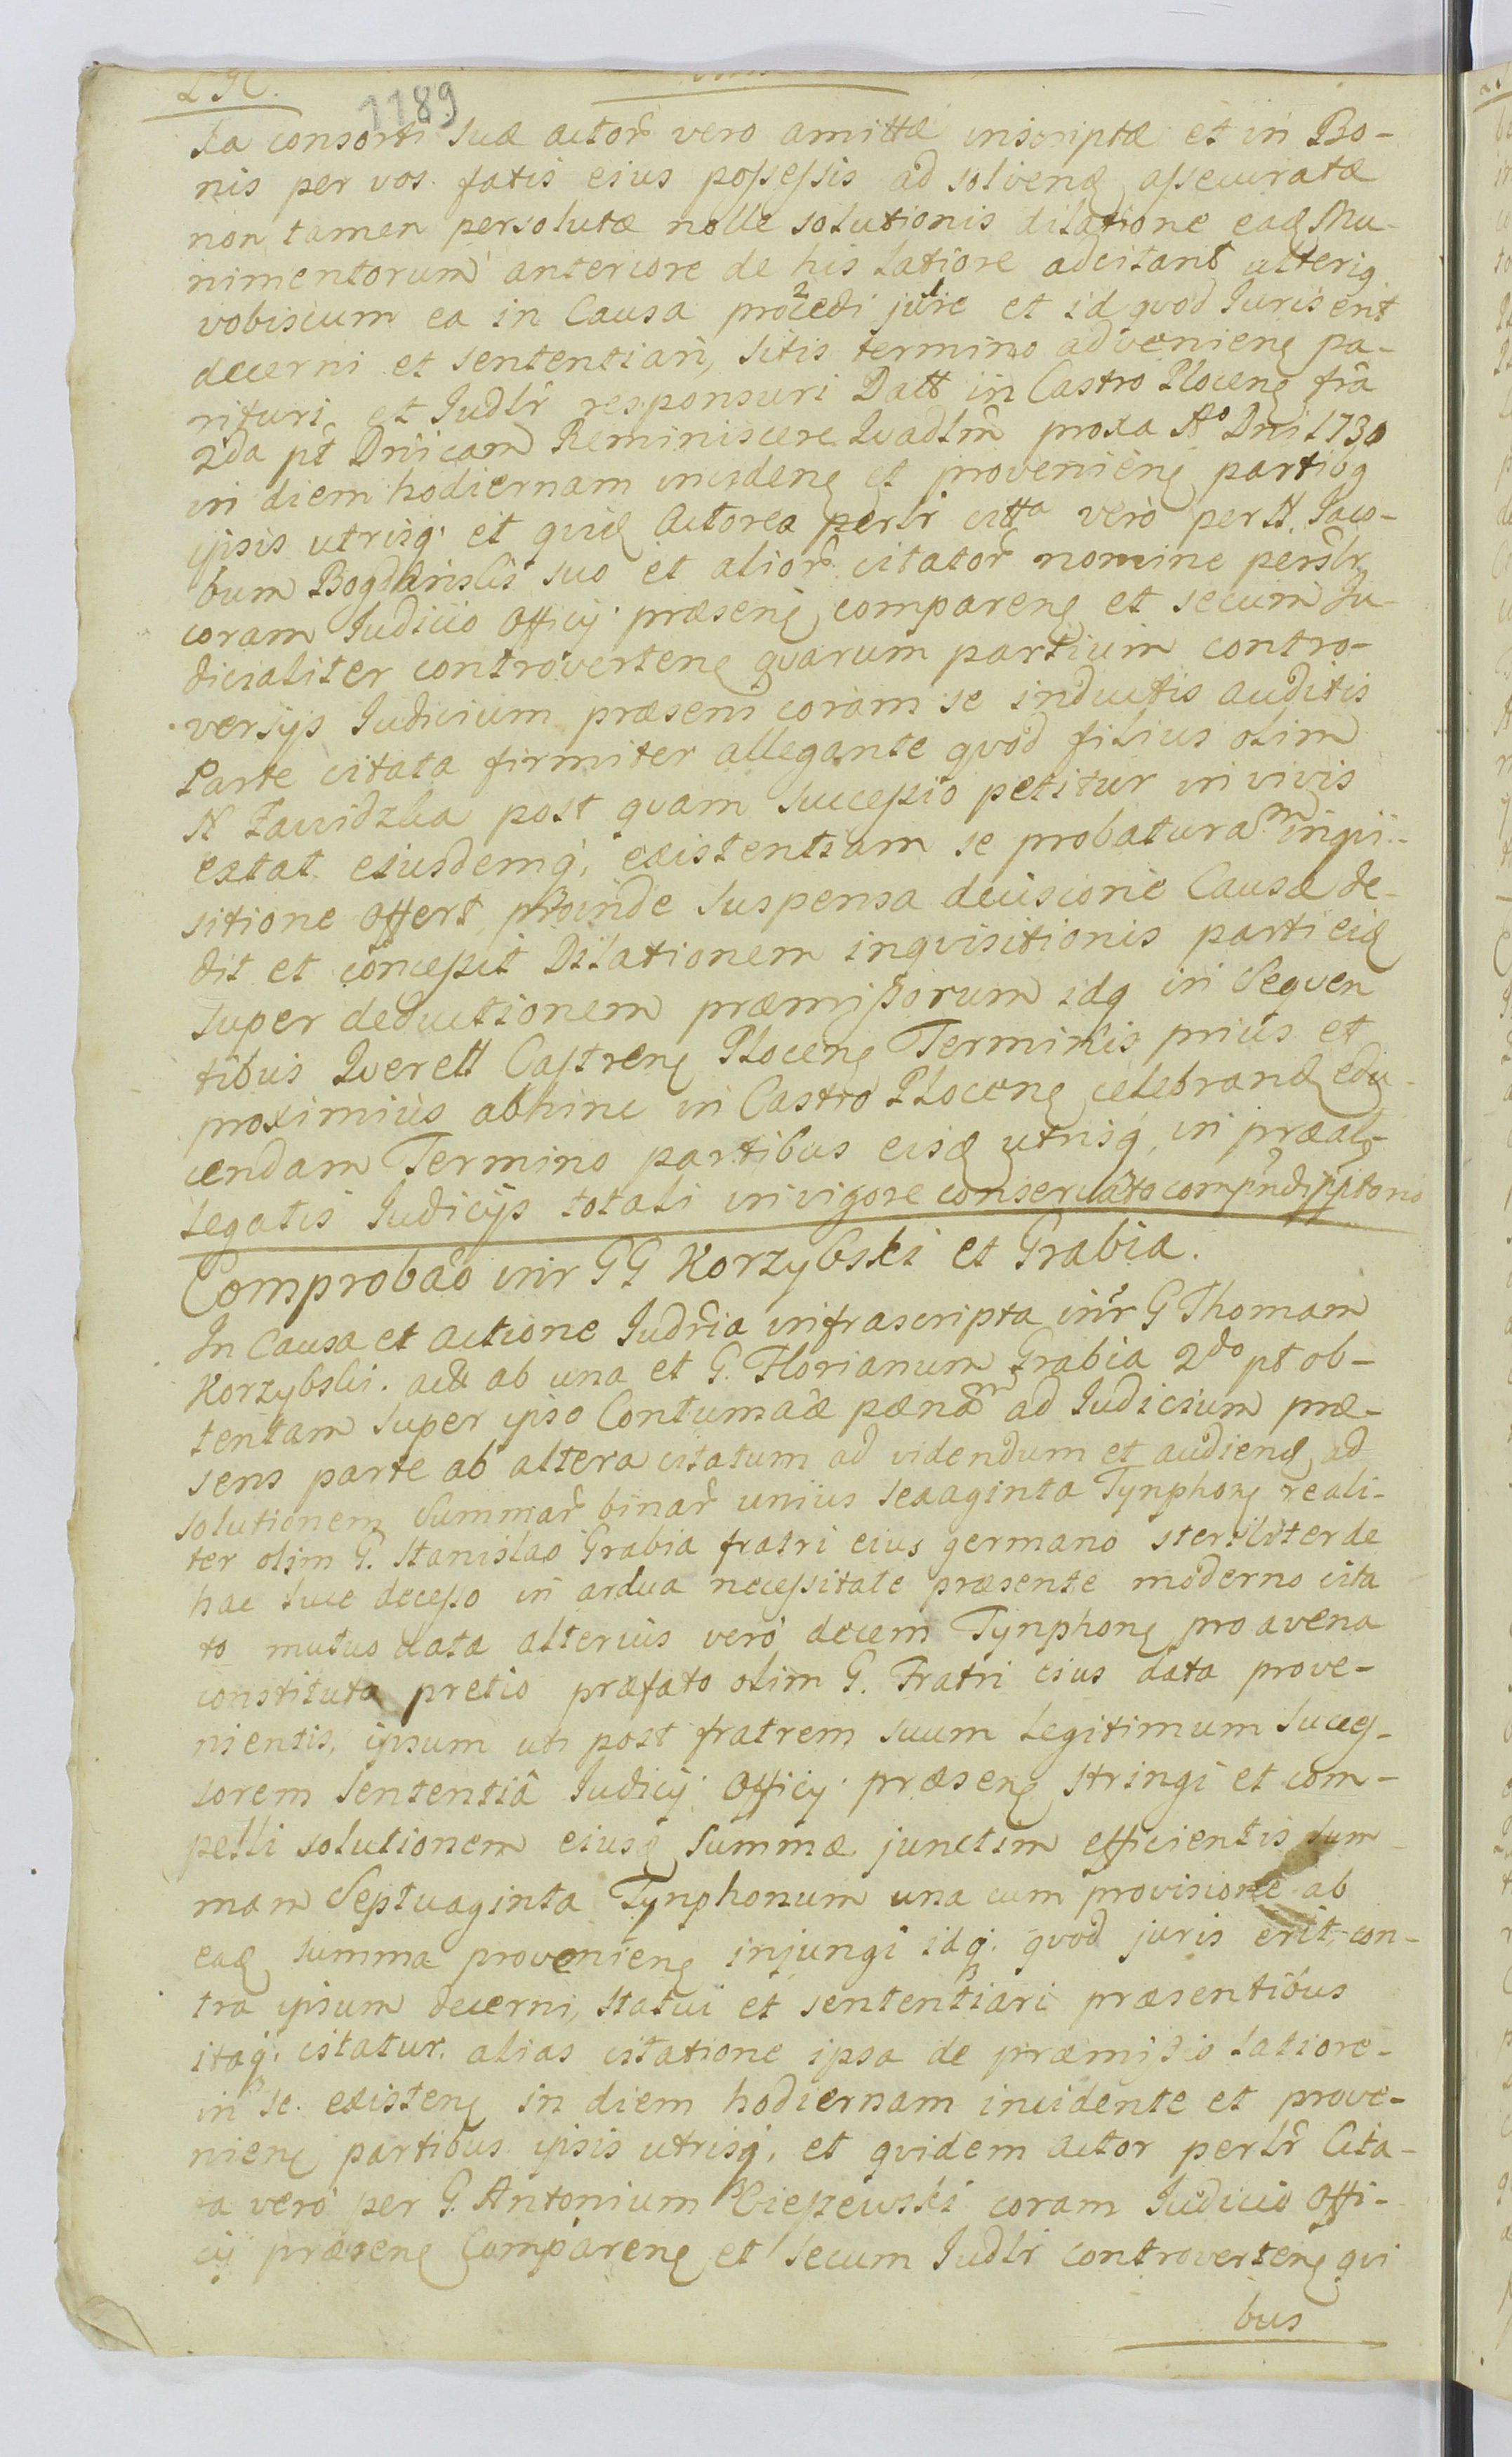 1189
ka consorti suæ actor̃ vero amittæ inscriptæ et in Bo-
nis per vos fatis eius possessis ad solvenḍ assecuratæ
non tamen persolutæ nolle solutionis dilatione eaḍ Mu-
nimentorum anteriore de his latiore adcitant ulterig
vobiscum ea in Causa procedi jure et id quod Juris erit
decerni et sententiari, sitis termino advenienẹ pa-
rituri et Judlr̃ responsuri Datt in Castro Plocenẹ fr̃a
2da pt̃ Dnicam Reminiscere Qvadlm̃ proxa Aº Dni 1730
in diem hodiernam incidenẹ et provenienẹ partibg
ipsis utrisq. et quiḍ Actorea perlr citta verò per N. Jaco-
bum Bogdanski suo et alior̃ citator̃ nomine perslr
coram Judicio Officij præsenẹ comparenẹ et secum Ju-
dicialiter controvertenẹ quarum partium contro-
versijs Judicium præsens coram se inductis auditis
Parte citata firmiter allegante quod filius olim
N Zawidzka post quam successio petitur in vivis
extat ejusdemq, existentiam se probaturam inqui-
sitione offert, proinde suspensa decisione Causæ de-
dit et concessit Dilationem inquisitionis parti eiḍ
super deductionem præmissorum idq in Sequen
tibus Qverell Castrenẹ Plocenẹ Terminis prius et
proximius abhinc in Castro Plocenẹ celebranḍ edu-
cendam Termino partibus eisḍ utrisq, in præal-
legatis Judicijs totali in vigore conservato compndi pptorio
Comprobão inr GG Korzybski et Grabia.
In Causa et actione Judr̃ia infrascripta intr G Thomam
Korzybski. act ab una et G. Florianum Grabia 2do pt ob-
tentam super ipso Contumaciæ pænam ad Judicium præ-
sens parte ab altera citatum ad videndum et audienḍ ad
solutionem Summar̃ binar̃ unius sexaginta Tynphonẹ reali-
ter olim G. Stanislao Grabia fratri eius germano steriliter de
hac luce decesso in ardua necessitate præsente moderno cita
to mutuo data alterius verò decem Tynphonẹ pro avena
constituta pretio præfato olim G. Fratri eius data prove-
nientis, ipsum uti post fratrem suum legitimum Succes-
sorem Sententiâ Judicij Officij præsenẹ stringi et com-
pelli solutionem eiusḍ Summæ junctim efficientis sum-
mam Septuaginta Tynphonum una cum provisione ab
eaḍ summa provenienẹ injungi idq. quod juris erit con-
tra ipsum decerni, statui et sententiari præsentibus
itaq. citatur. alias citatione ipsa de præmisso latiore-
in se. existenẹ in diem hodiernam incidente et prove-
nienẹ partibus ipsis utrisq, et quidem actor perlr̃ Cita-
ta verò per G. Antonium Ciepiewski coram Judicio Offi-
cij præsenẹ Comparenẹ et secum Judlr controvertenẹ qui
bus